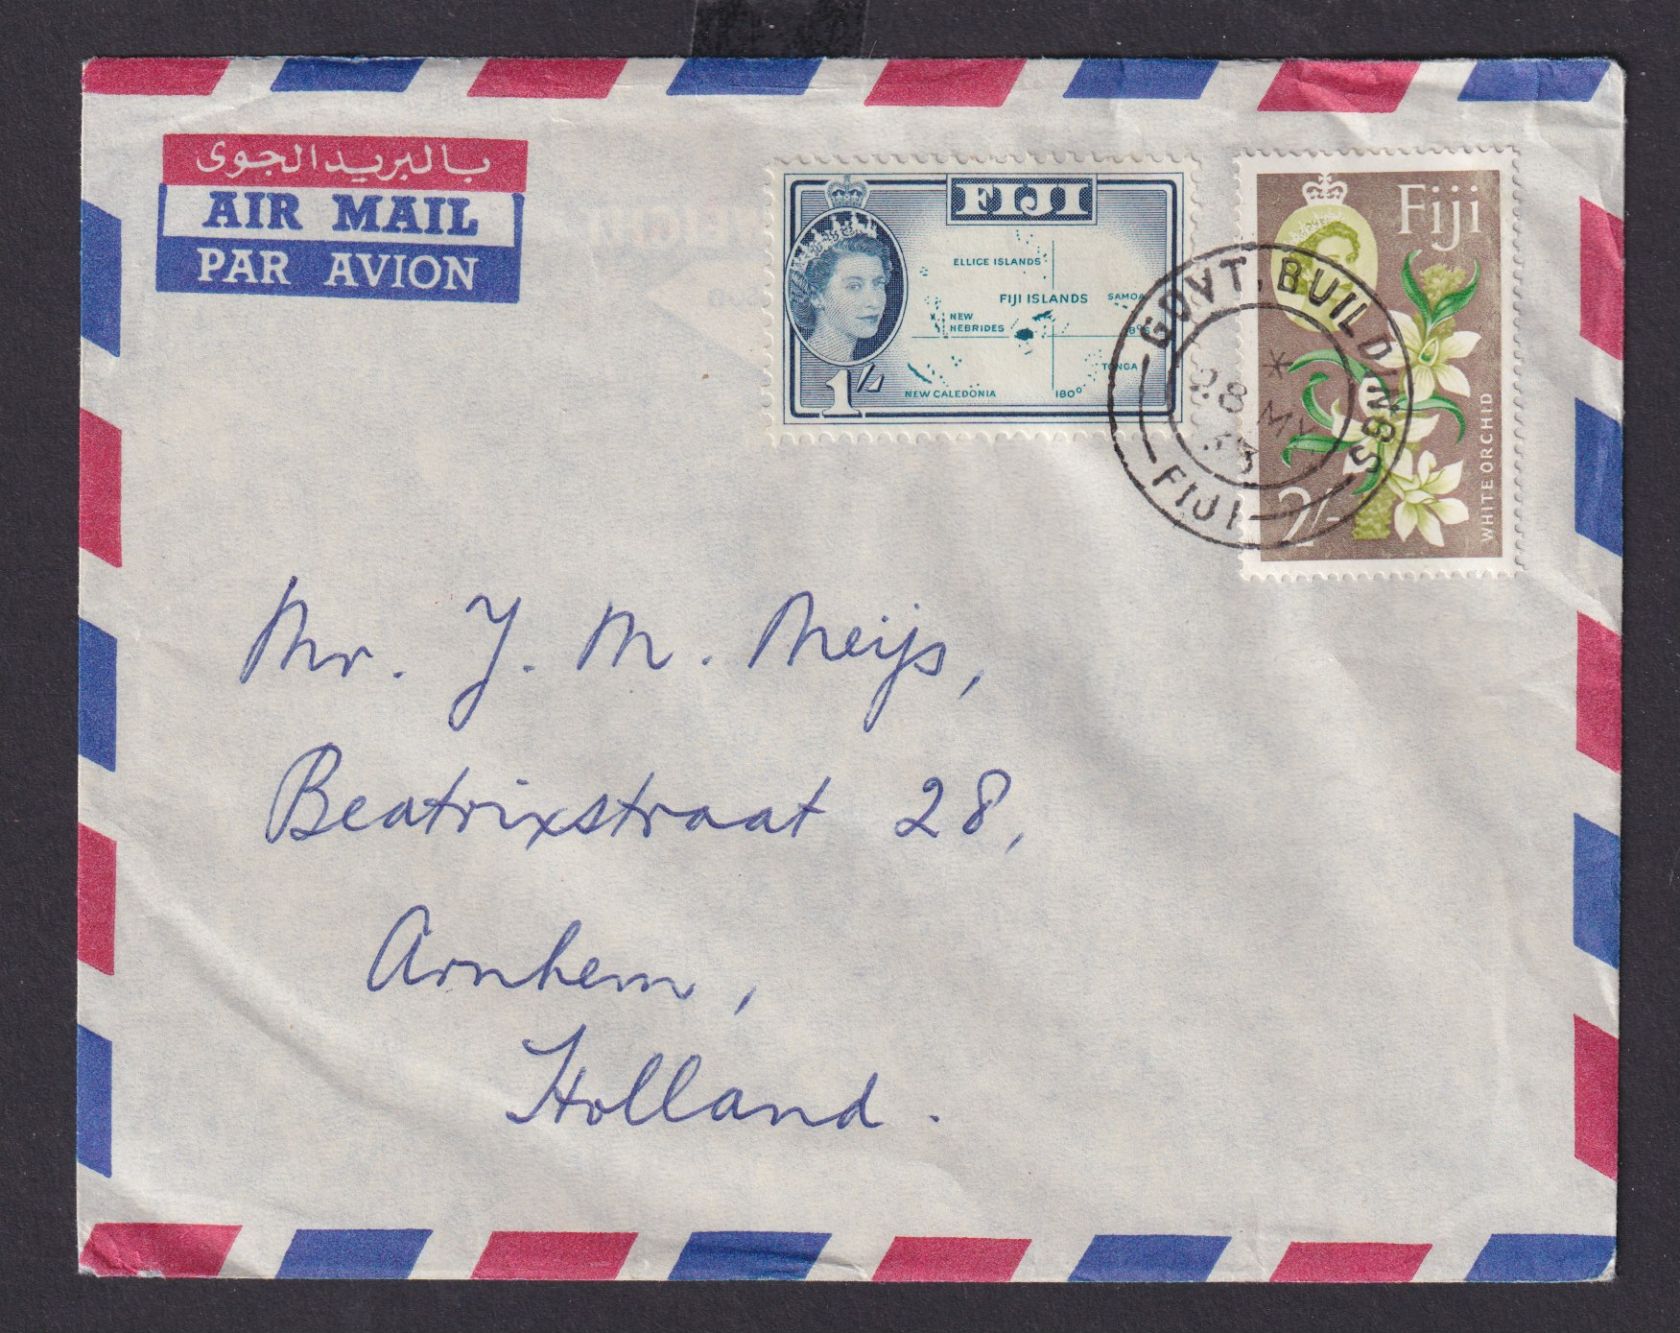 بالبريد الجوى
AIR MAIL
PAR AVION
FIJI
ELLICE ISLANDS
FIJI ISLANDS SAMOA
NEW
HEBRIDES
TONGA
NEW CALEDONIA 180°
1/-
Fiji
WHITE ORCHID
2/-
GOVT. BUILDINGS
28 MY
FIJI
Mr. J. M. Meijs,
Beatrixstraat 28,
Arnhem,
Holland.